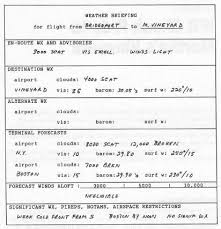 WEATHER BRIEFING
for flight from BRIDGEPORT to M. VINEYARD
EN-ROUTE WX AND ADVISORIES
8000 SCAT VIS 5 MILE WINDS LIGHT
DESTINATION WX
airport clouds: 4000 SCAT
VINEYARD vis: 86 baron: 30.05's surf w: 230°/10
ALTERNATE WX
airport clouds:
vis: baron: surf w:
TERMINAL FORECASTS
airport clouds: 5000 SCAT 12,000 BROKEN
N.Y. vis: 10 baron: 29.80 surf w: 250°/15
airport clouds: 7000 BKN
BOSTON vis: 15 baron: 29.90 surf w: 220°/10
FORECAST WINDS ALOFT 3000 5000 10,000
NEGLIGIBLE
SIGNIFICANT WX, PIREPS, NOTAMS, AIRSPACE RESTRICTIONS
WEAK COLD FRONT FROM S BOSTON BY NOON NO SIGNIF WX